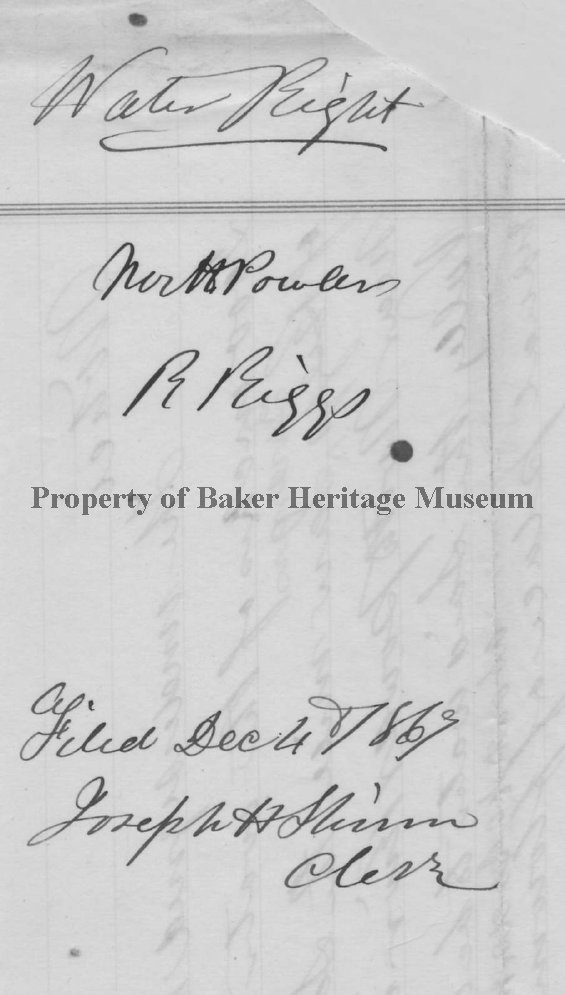 Water Right
North Powder
R Riggs
Property of Baker Heritage Museum
Filed Dec 4th 1867
Joseph H Shinn
Clerk